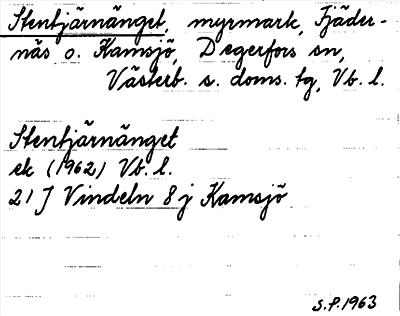 Stentjärnänget, myrmark, Fjäder-
näs o. Kamsjö, Degerfors sn,
Västerb. s. doms. tg, Vb. l.
Stentjärnänget
ek (1962) Vb. l.
21 J Vindeln 8 j Kamsjö
S.P. 1963